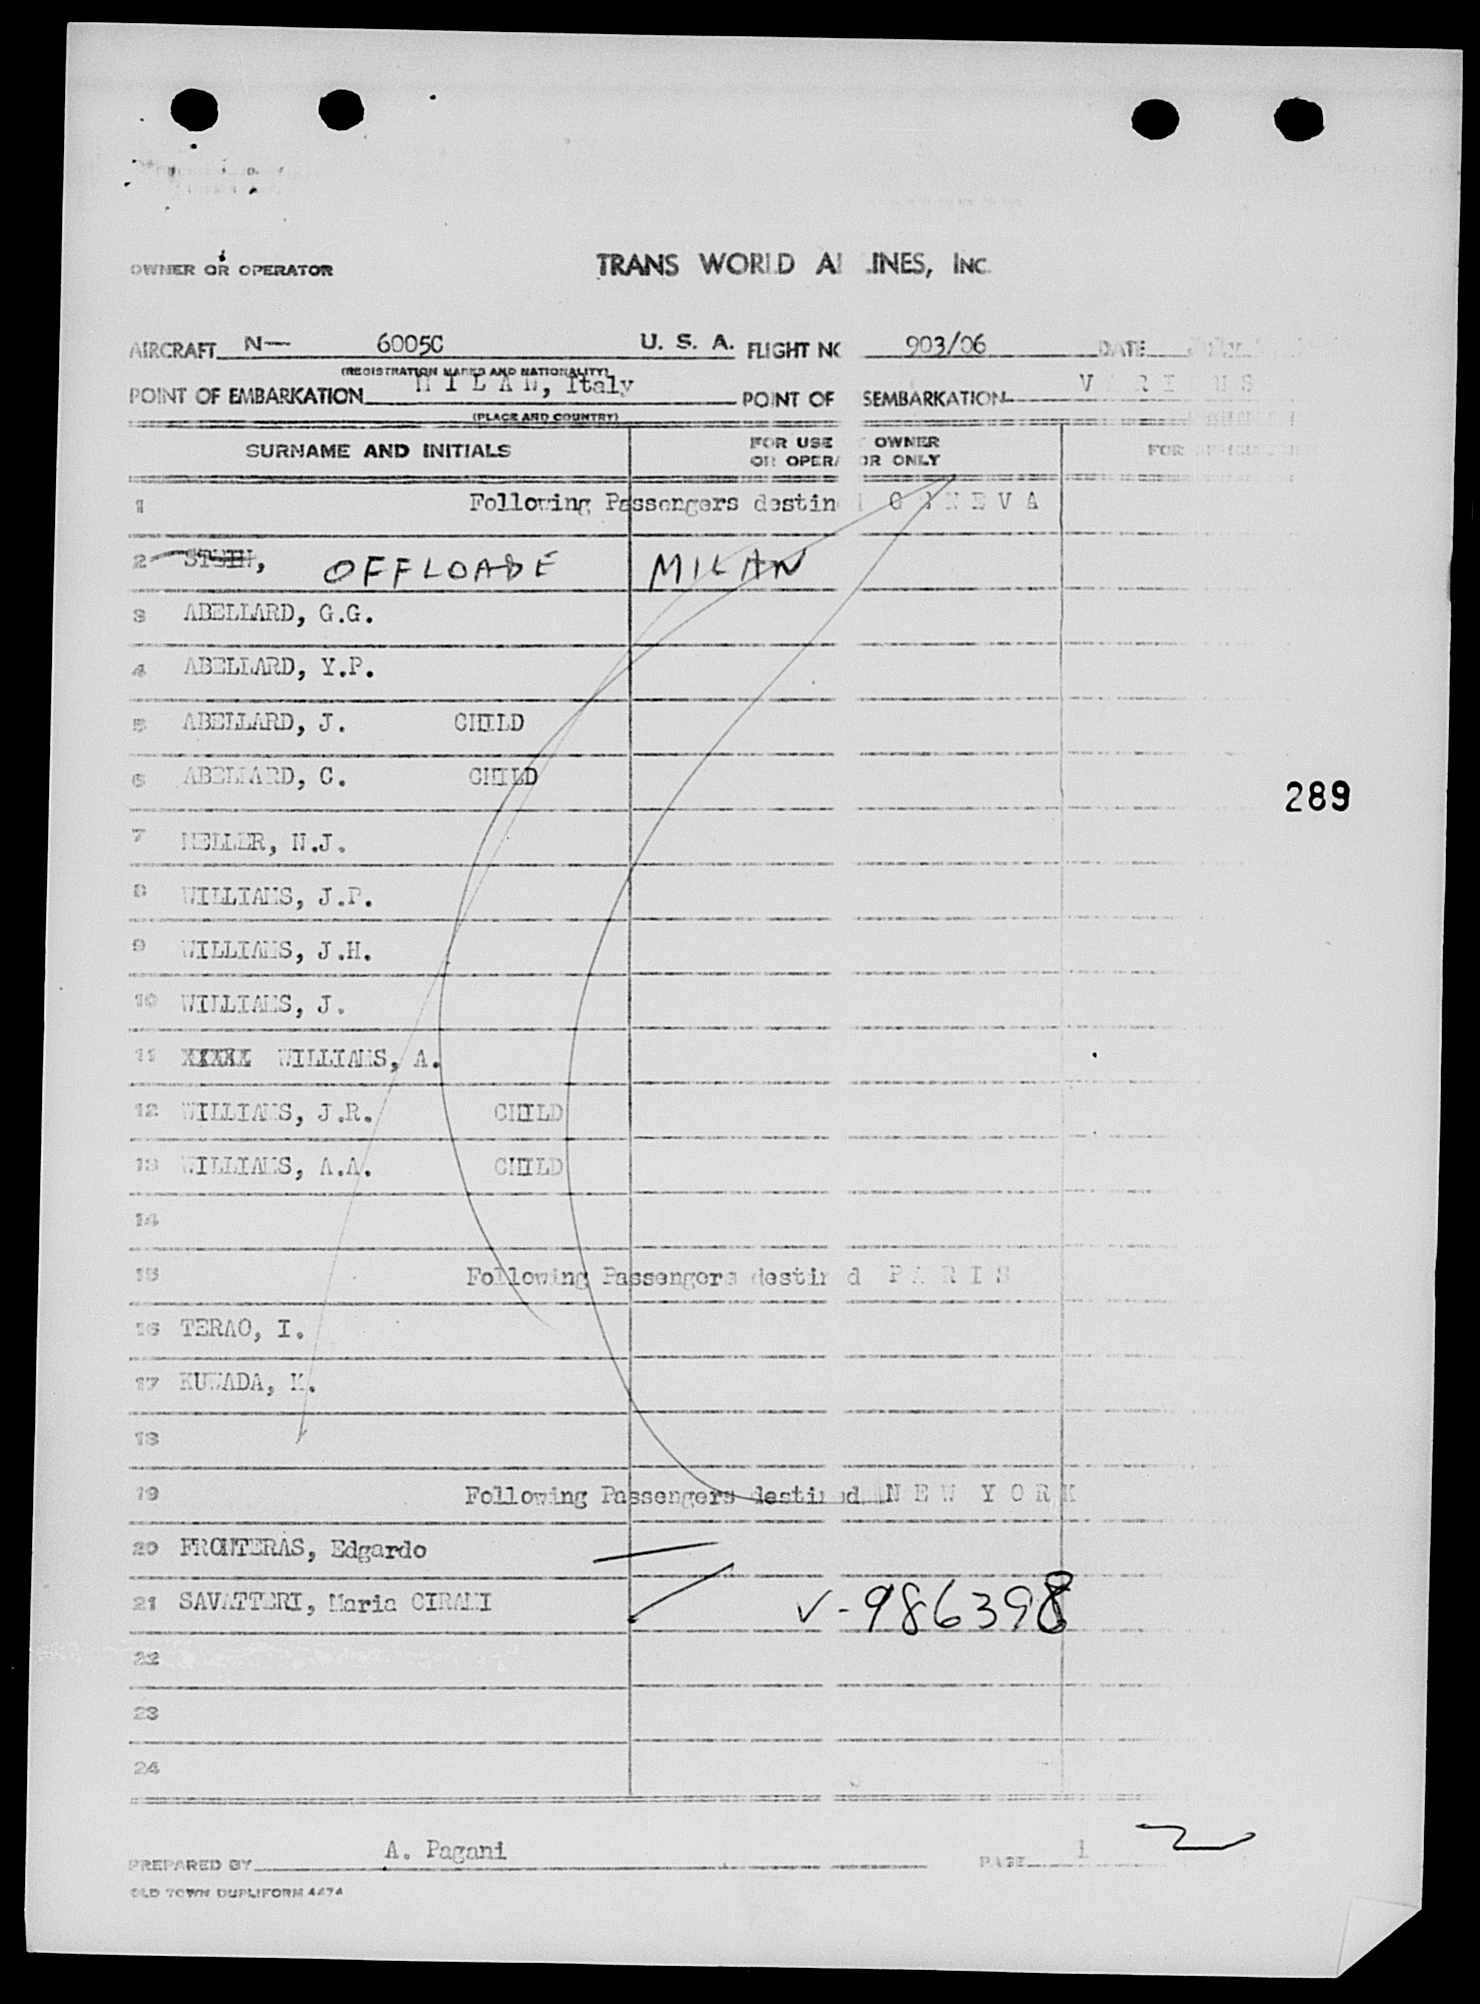 OWNER OR OPERATOR TRANS WORLD AI LINES, INC.
AIRCRAFT N— 6005C U. S. A. FLIGHT NO 903/06 DATE
(REGISTRATION MARKS AND NATIONALITY)
POINT OF EMBARKATION MILAN, Italy POINT OF SEMBARKATION
(PLACE AND COUNTRY)
SURNAME AND INITIALS FOR USE OWNER FOR
OR OPERATOR ONLY
1 Following Passengers destin GENEVA
2 OFFLOADE MILAN
3 ABELLARD, G.G.
4 ABELLARD, Y.P.
5 ABELLARD, J. CHILD
6 ABELLARD, C. CHILD
289
7 MELLER, N.J.
8 WILLIAMS, J.P.
9 WILLIAMS, J.H.
10 WILLIAMS, J.
11 XXXXX WILLIAMS, A.
12 WILLIAMS, J.R. CHILD
13 WILLIAMS, A.A. CHILD
14
15 Following Passengers destined PARIS
16 TERAO, I.
17 KUWADA, K.
18
19 Following Passengers destined NEW YORK
20 FRONTERAS, Edgardo
21 SAVATTERI, Maria CIRAMI V-986398
22
23
24
PREPARED BY A. Pagani PAGE 1
OLD TOWN DUPLIFORM 4474